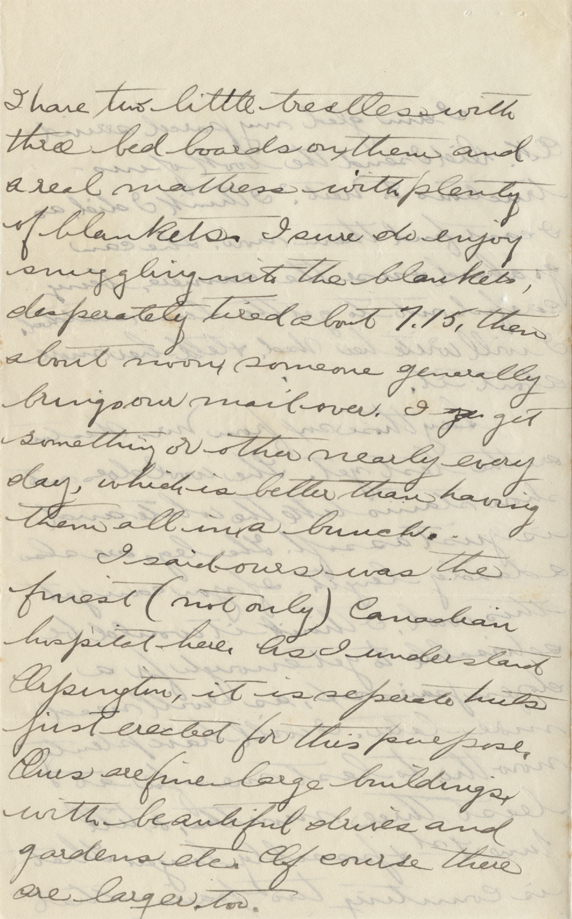 I have two little trestles with
three bed boards on them and
a real mattress with plenty
of blankets. I sure do enjoy
snuggling into the blankets,
desperately tired about 7.15, then
about noon, someone generally
brings our mail over. I get
something or other nearly every
day, which is better than having
them all in a bunch.
I said ours was the
finest (not only) Canadian
hospital here. As I understand
Orpington, it is seperate huts
just erected for this purpose.
Ours are fine large buildings,
with beautiful drives and
gardens etc. Of course there
are larger too.